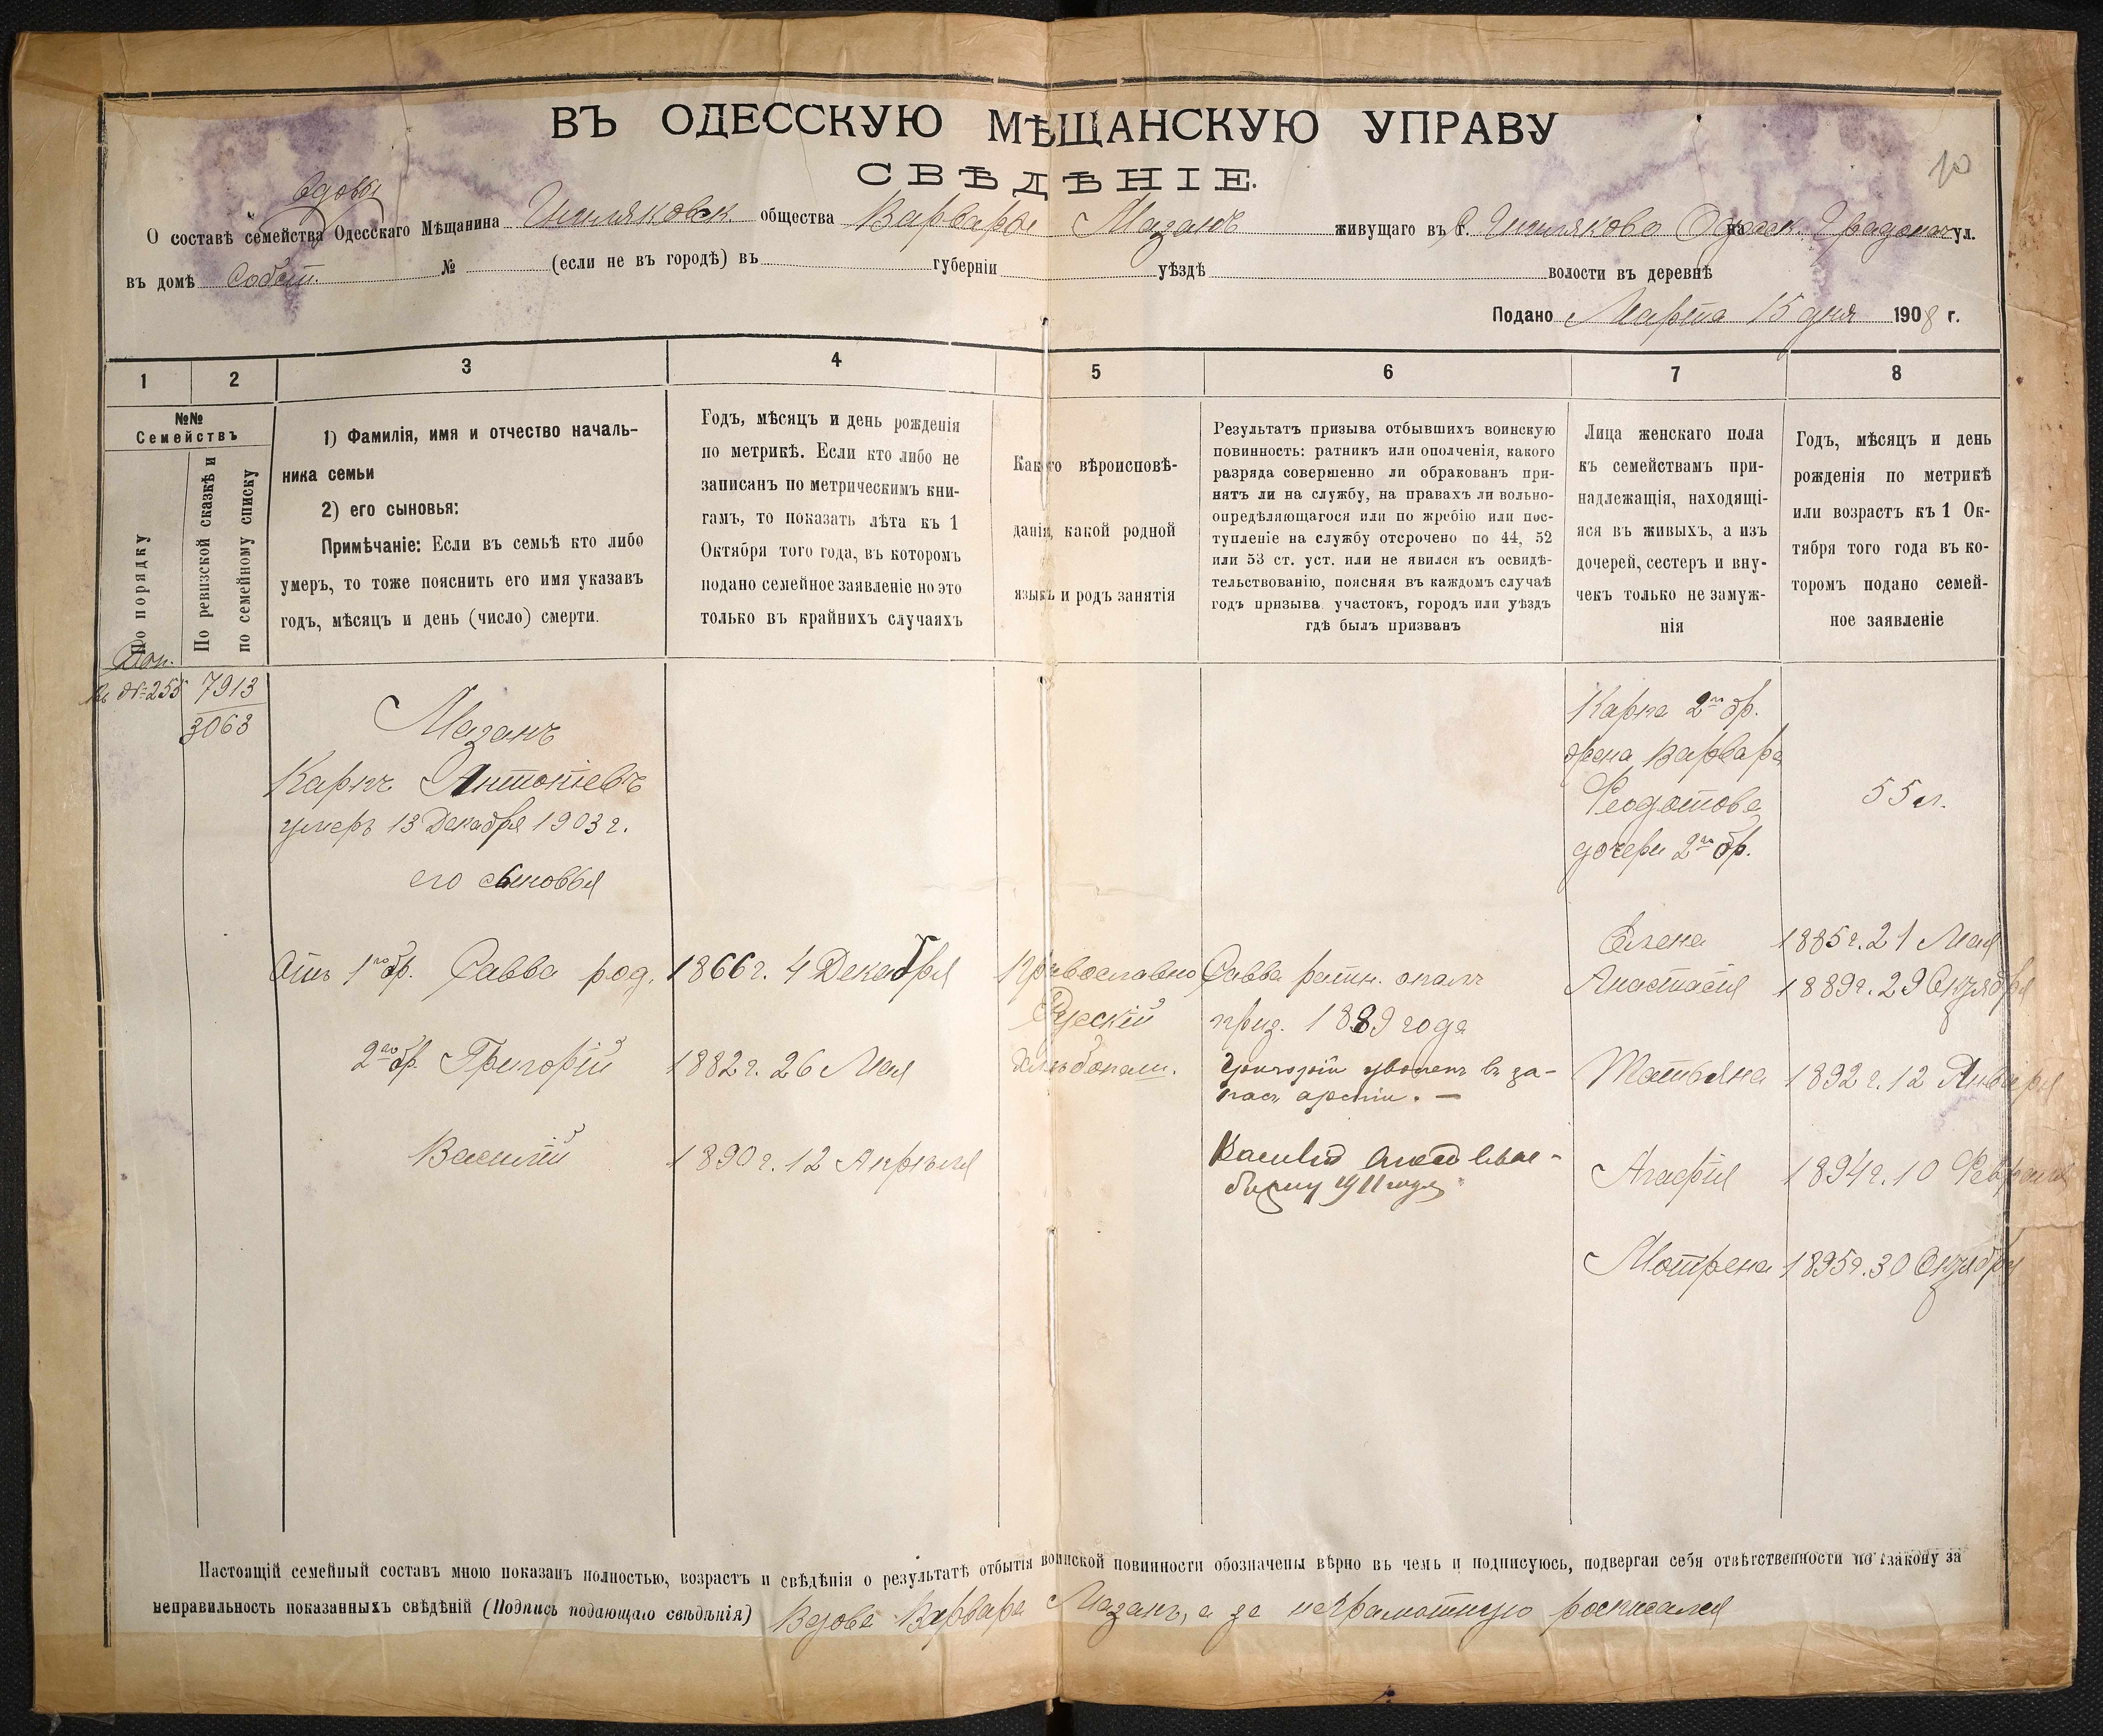 10
ВЪ ОДЕССКУЮ МѢЩАНСКУЮ УПРАВУ
СВѢДѢНІЕ.
вдовы
О составѣ семейства Одесскаго Мѣщанина общества Варвары Мазанъ живущаго въ г. Одесск. Градонач ул.
въ домѣ собст. № (если не въ городѣ) въ губерніи уѣздѣ волости въ деревнѣ
Подано Марта 15 дня 1908 г.
1 2 3 4 5 6 7 8
№№ Семействъ
По порядку
По ревизской сказкѣ и по семейному списку
1) Фамилія, имя и отчество началь-
ника семьи
2) его сыновья:
Примѣчаніе: Если въ семьѣ кто либо
умеръ, то тоже пояснить его имя указавъ
годъ, мѣсяцъ и день (число) смерти.
Годъ, мѣсяцъ и день рожденія
по метрикѣ. Если кто либо не
записанъ по метрическимъ кни-
гамъ, то показать лѣта къ 1
Октября того года, въ которомъ
подано семейное заявленіе но это
только въ крайнихъ случаяхъ
Какого вѣроисповѣ-
данія, какой родной
языкъ и родъ занятія
Результатъ призыва отбывшихъ воинскую
повинность: ратникъ или ополченія, какого
разряда совершенно ли обракованъ при-
нятъ ли на службу, на правахъ ли вольно-
опредѣляющагося или по жребію или пос-
тупленіе на службу отсрочено по 44, 52
или 53 ст. уст. или не явился къ освидѣ-
тельствованію, поясняя въ каждомъ случаѣ
годъ призыва участокъ, городъ или уѣздъ
гдѣ былъ призванъ
Лица женскаго пола
къ семействамъ при-
надлежащія, находящі-
яся въ живыхъ, а изъ
дочерей, сестеръ и вну-
чекъ только не замуж-
нія
Годъ, мѣсяцъ и день
рожденія по метрикѣ
или возрастъ къ 1 Ок-
тября того года въ ко-
торомъ подано семей-
ное заявленіе
Доп.
къ № 255
7913
3063
Мазанъ
Карпъ Антоніевъ
умеръ 13 Декабря 1903 г.
его сыновья
Отъ 1го бр. Савва род. 1866 г. 4 Декабря
2го бр. Григорій 1882 г. 26 Мая
Василій 1890 г. 12 Апрѣля
Православно
Русскій
Хлѣбопаш.
Савва ратн. ополч
приз. 1889 года
Григорій уволенъ въ за-
пасъ арміи. —
Василій
1911 года
Карпа 2го бр.
жена Варвара
Феодотова
55 л.
дочери 2го бр.
Елена 1885 г. 21 Мая
Анастасія 1889 г. 29 Октября
Татьяна 1892 г. 12 Января
Агафія 1894 г. 10 Февраля
Мотрена 1895 г. 30 Октября
Настоящій семейный составъ мною показанъ полностью, возрастъ и свѣдѣнія о результатѣ отбытія воинской повинности обозначены вѣрно въ чемъ и подписуюсь, подвергая себя отвѣтственности по закону за
неправильность показанныхъ свѣдѣній (Подпись подающаго свѣдѣнія) Вдова Варвара Мазанъ, а за неграмотную росписался